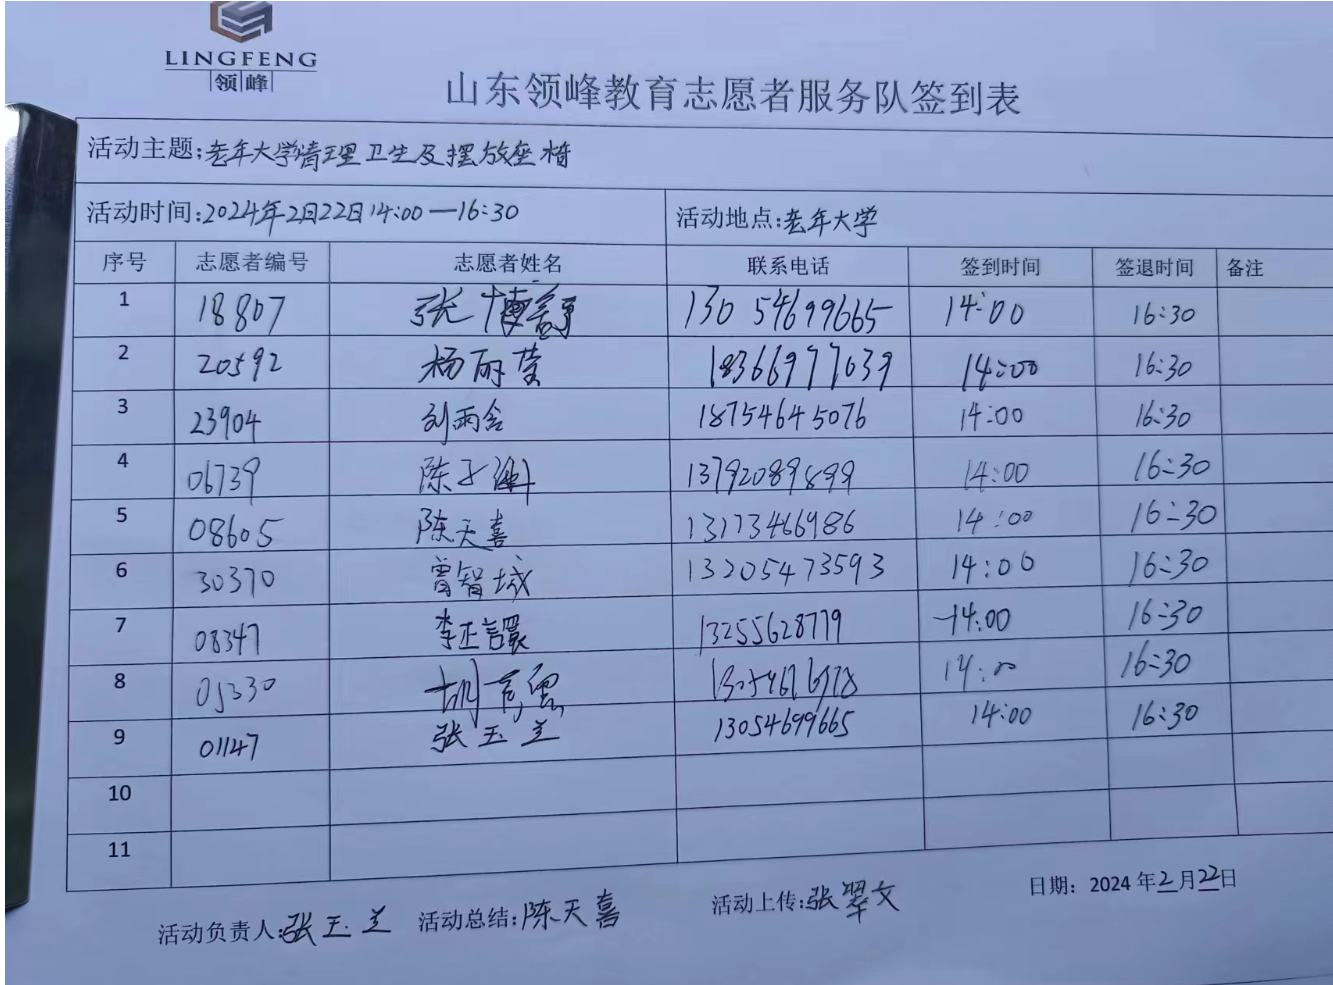 LINGFENG
领峰
山东领峰教育志愿者服务队签到表
活动主题:老年大学清理卫生及摆放座椅
活动时间:2024年2月22日14:00—16:30 活动地点:老年大学
序号 志愿者编号 志愿者姓名 联系电话 签到时间 签退时间 备注
1 18807 张博 13054699665 14:00 16:30
2 20592 杨丽莹 18366977039 14:00 16:30
3 23904 刘雨含 18754645076 14:00 16:30
4 06739 陈子 13792089899 14:00 16:30
5 08605 陈天喜 13173466986 14:00 16:30
6 30370 曾智城 13205473593 14:00 16:30
7 08347 李正 13255628779 14:00 16:30
8 05330 胡 14:00 16:30
9 01147 张玉兰 13054699665 14:00 16:30
10
11
活动负责人:张玉兰 活动总结:陈天喜 活动上传:张翠文 日期：2024年2月22日